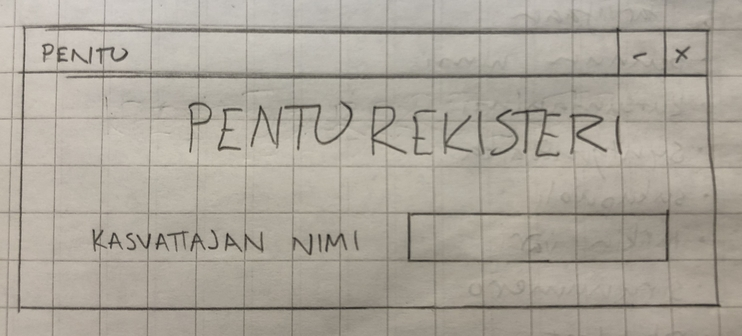 PENTU - X
PENTUREKISTERI
KASVATTAJAN NIMI